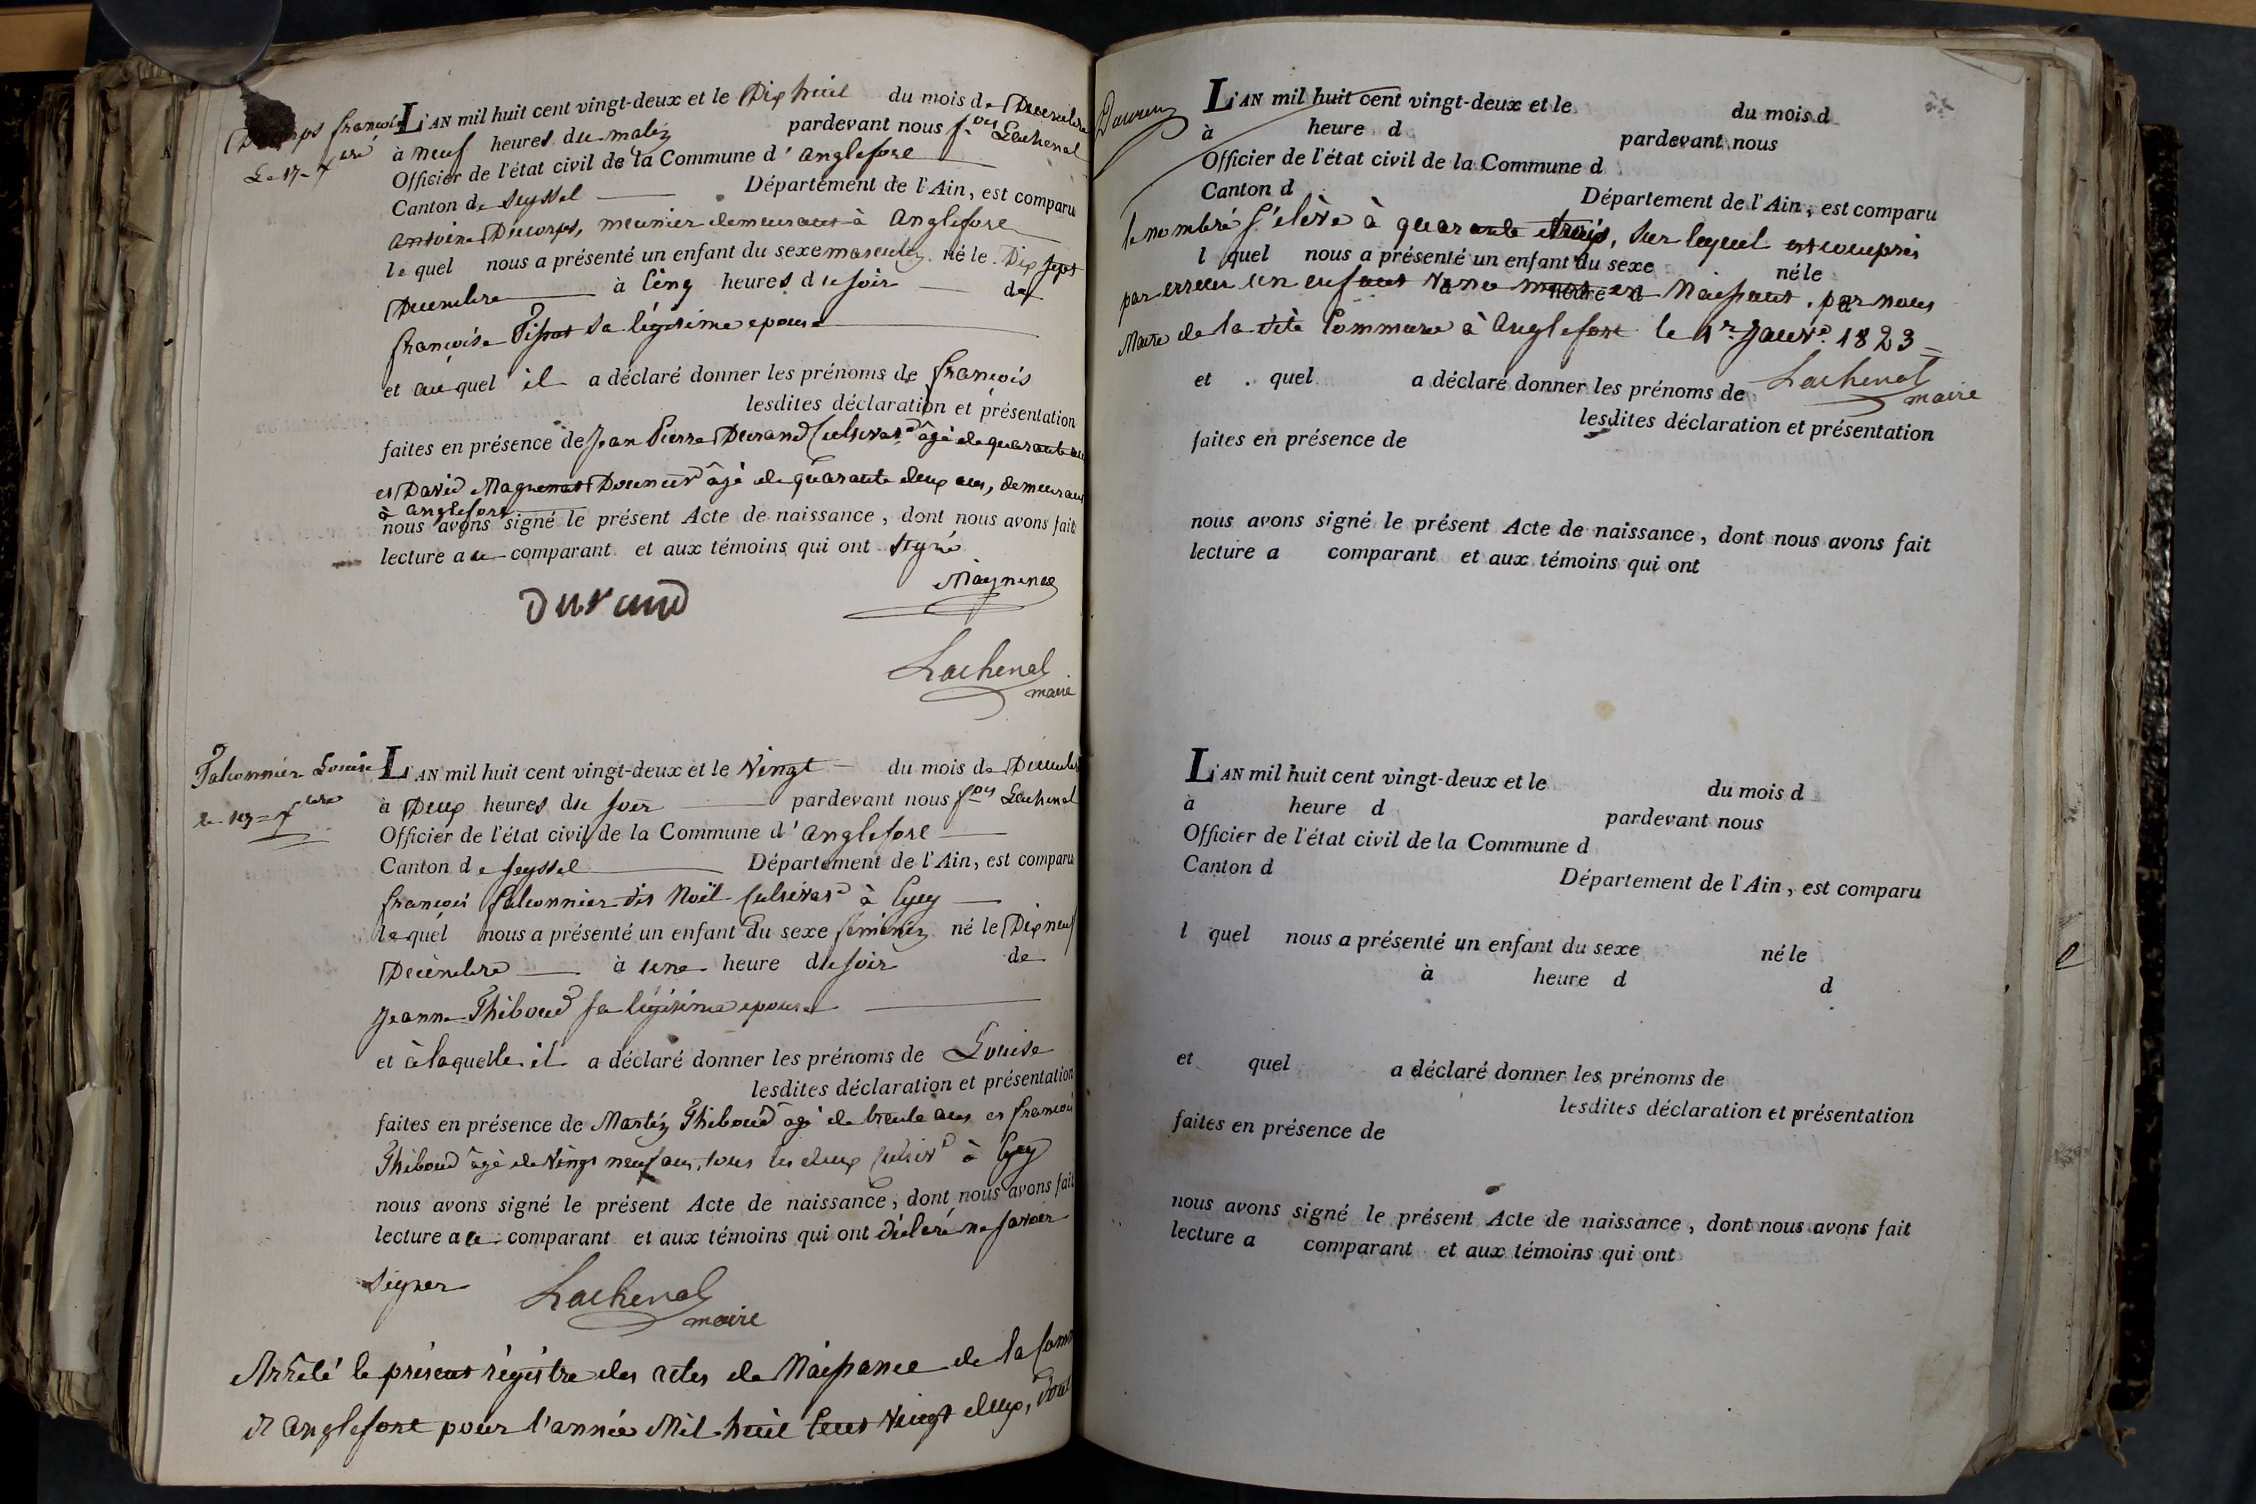 françois
Le 17 xbre
L'AN mil huit cent vingt-deux et le Dix huit du mois de Decembre
à neuf heures du matin pardevant nous f.ois Lachenal
Officier de l'état civil de la Commune d'anglefort
Canton de Seyssel Département de l'Ain, est comparu
antoine Ducorps, meunier demeurant à anglefort
le quel nous a présenté un enfant du sexe masculin né le Dix sept
Decembre à Cinq heures du soir de
françoise Tissot sa légitime epouse
et au quel il a déclaré donner les prénoms de françois
lesdites déclaration et présentation
faites en présence de Jean Pierre Durand Cultivat.r âgé de quarante
et David Magnenat Douanier âgé de quarante deux ans, demeurant
à anglefort
nous avons signé le présent Acte de naissance, dont nous avons fait
lecture au comparant et aux témoins qui ont signé
Durand
Lachenal
maire
falconnier Louise
le 19 xbre
L'AN mil huit cent vingt-deux et le Vingt du mois de Decembre
à Deux heures du soir pardevant nous f.ois Lachenal
Officier de l'état civil de la Commune d'anglefort
Canton de Seyssel Département de l'Ain, est comparu
françois falconnier dit Noël Cultivat.r à
le quel nous a présenté un enfant du sexe féminin né le Dix neuf
Decembre à une heure du soir de
Jeanne Thiboud sa légitime epouse
et à laquelle il a déclaré donner les prénoms de Louise
lesdites déclaration et présentation
faites en présence de Martin Thiboud âgé de trente ans et françois
Thiboud âgé de Vingt neuf ans, tous les deux Cultiv.r à
nous avons signé le présent Acte de naissance, dont nous avons fait
lecture au comparant et aux témoins qui ont déclaré ne savoir
signer
Lachenal
maire
Arrêté le présent régistre des actes de Naissance de la Com
d'anglefort pour l'année Mil huit Cent Vingt deux, dont
L'AN mil huit cent vingt-deux et le du mois d
à heure d pardevant nous
Officier de l'état civil de la Commune d
Canton d Département de l'Ain, est comparu
le nombre s'élève à quarante trois, sur lequel est compris
l quel nous a présenté un enfant du sexe né le
à heure d d
par erreur un enfant mort en Naissant. par nous
Maire de la dite Commune à anglefort le 1.er Janv.r 1823
et quel a déclaré donner les prénoms de
Lachenal
maire
lesdites déclaration et présentation
faites en présence de
nous avons signé le présent Acte de naissance, dont nous avons fait
lecture a comparant et aux témoins qui ont
L'AN mil huit cent vingt-deux et le du mois d
à heure d pardevant nous
Officier de l'état civil de la Commune d
Canton d Département de l'Ain, est comparu
l quel nous a présenté un enfant du sexe né le
à heure d d
et quel a déclaré donner les prénoms de
lesdites déclaration et présentation
faites en présence de
nous avons signé le présent Acte de naissance, dont nous avons fait
lecture a comparant et aux témoins qui ont